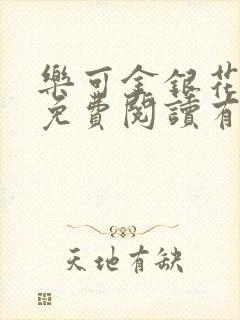 樂可金銀花
免費閱讀有
天地有缺